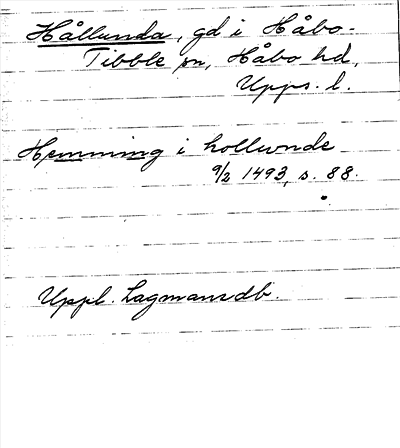 Hållunda, gd i Håbo-
Tibble sn, Håbo hd,
Upps. l.
Hemming i hollwnde
9/2 1493, s. 88.
Uppl. Lagmansdb.